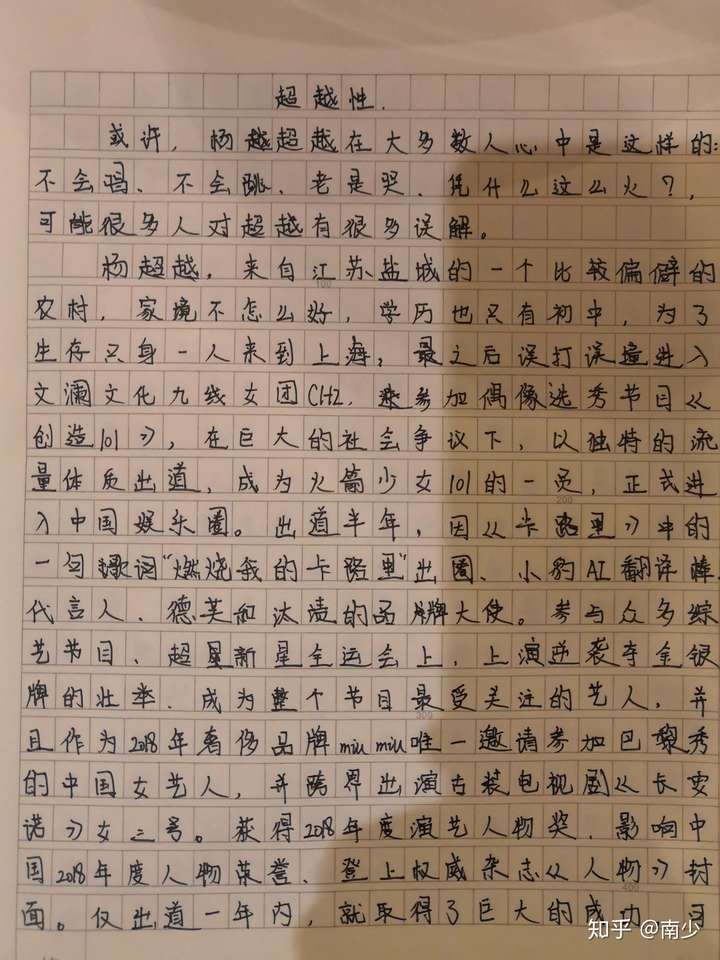 超越性.
或许，杨越超越在大多数人心中是这样的：
不会唱、不会跳、老是哭、凭什么这么火？，
可能很多人对超越有很多误解。
杨超越，来自江苏盐城的一个比较偏僻的
100
农村，家境不怎么好，学历也只有初中，为了
生存只身一人来到上海，最之后误打误撞进入
文澜文化九线女团CH2，参加偶像选秀节目《
创造101》，在巨大的社会争议下，以独特的流
量体质出道，成为火箭少女101的一员，正式进
200
入中国娱乐圈。出道半年，因《卡路里》中的
一句歌词“燃烧我的卡路里”出圈、小豹AI翻译棒
代言人、德芙和汰渍的品牌大使。参与众多综
艺节目、超星新星全运会上，上演逆袭夺金银
牌的壮举、成为整个节目最受关注的艺人，并
300
且作为2018年奢侈品牌miumiu唯一邀请参加巴黎秀
的中国女艺人，并跨界出演古装电视剧《长安
诺》女二号。获得2018年度演艺人物奖、影响中
国2018年度人物荣誉、登上权威杂志《人物》封
400
面。仅出道一年内，就取得了巨大的成功
知乎 @南少